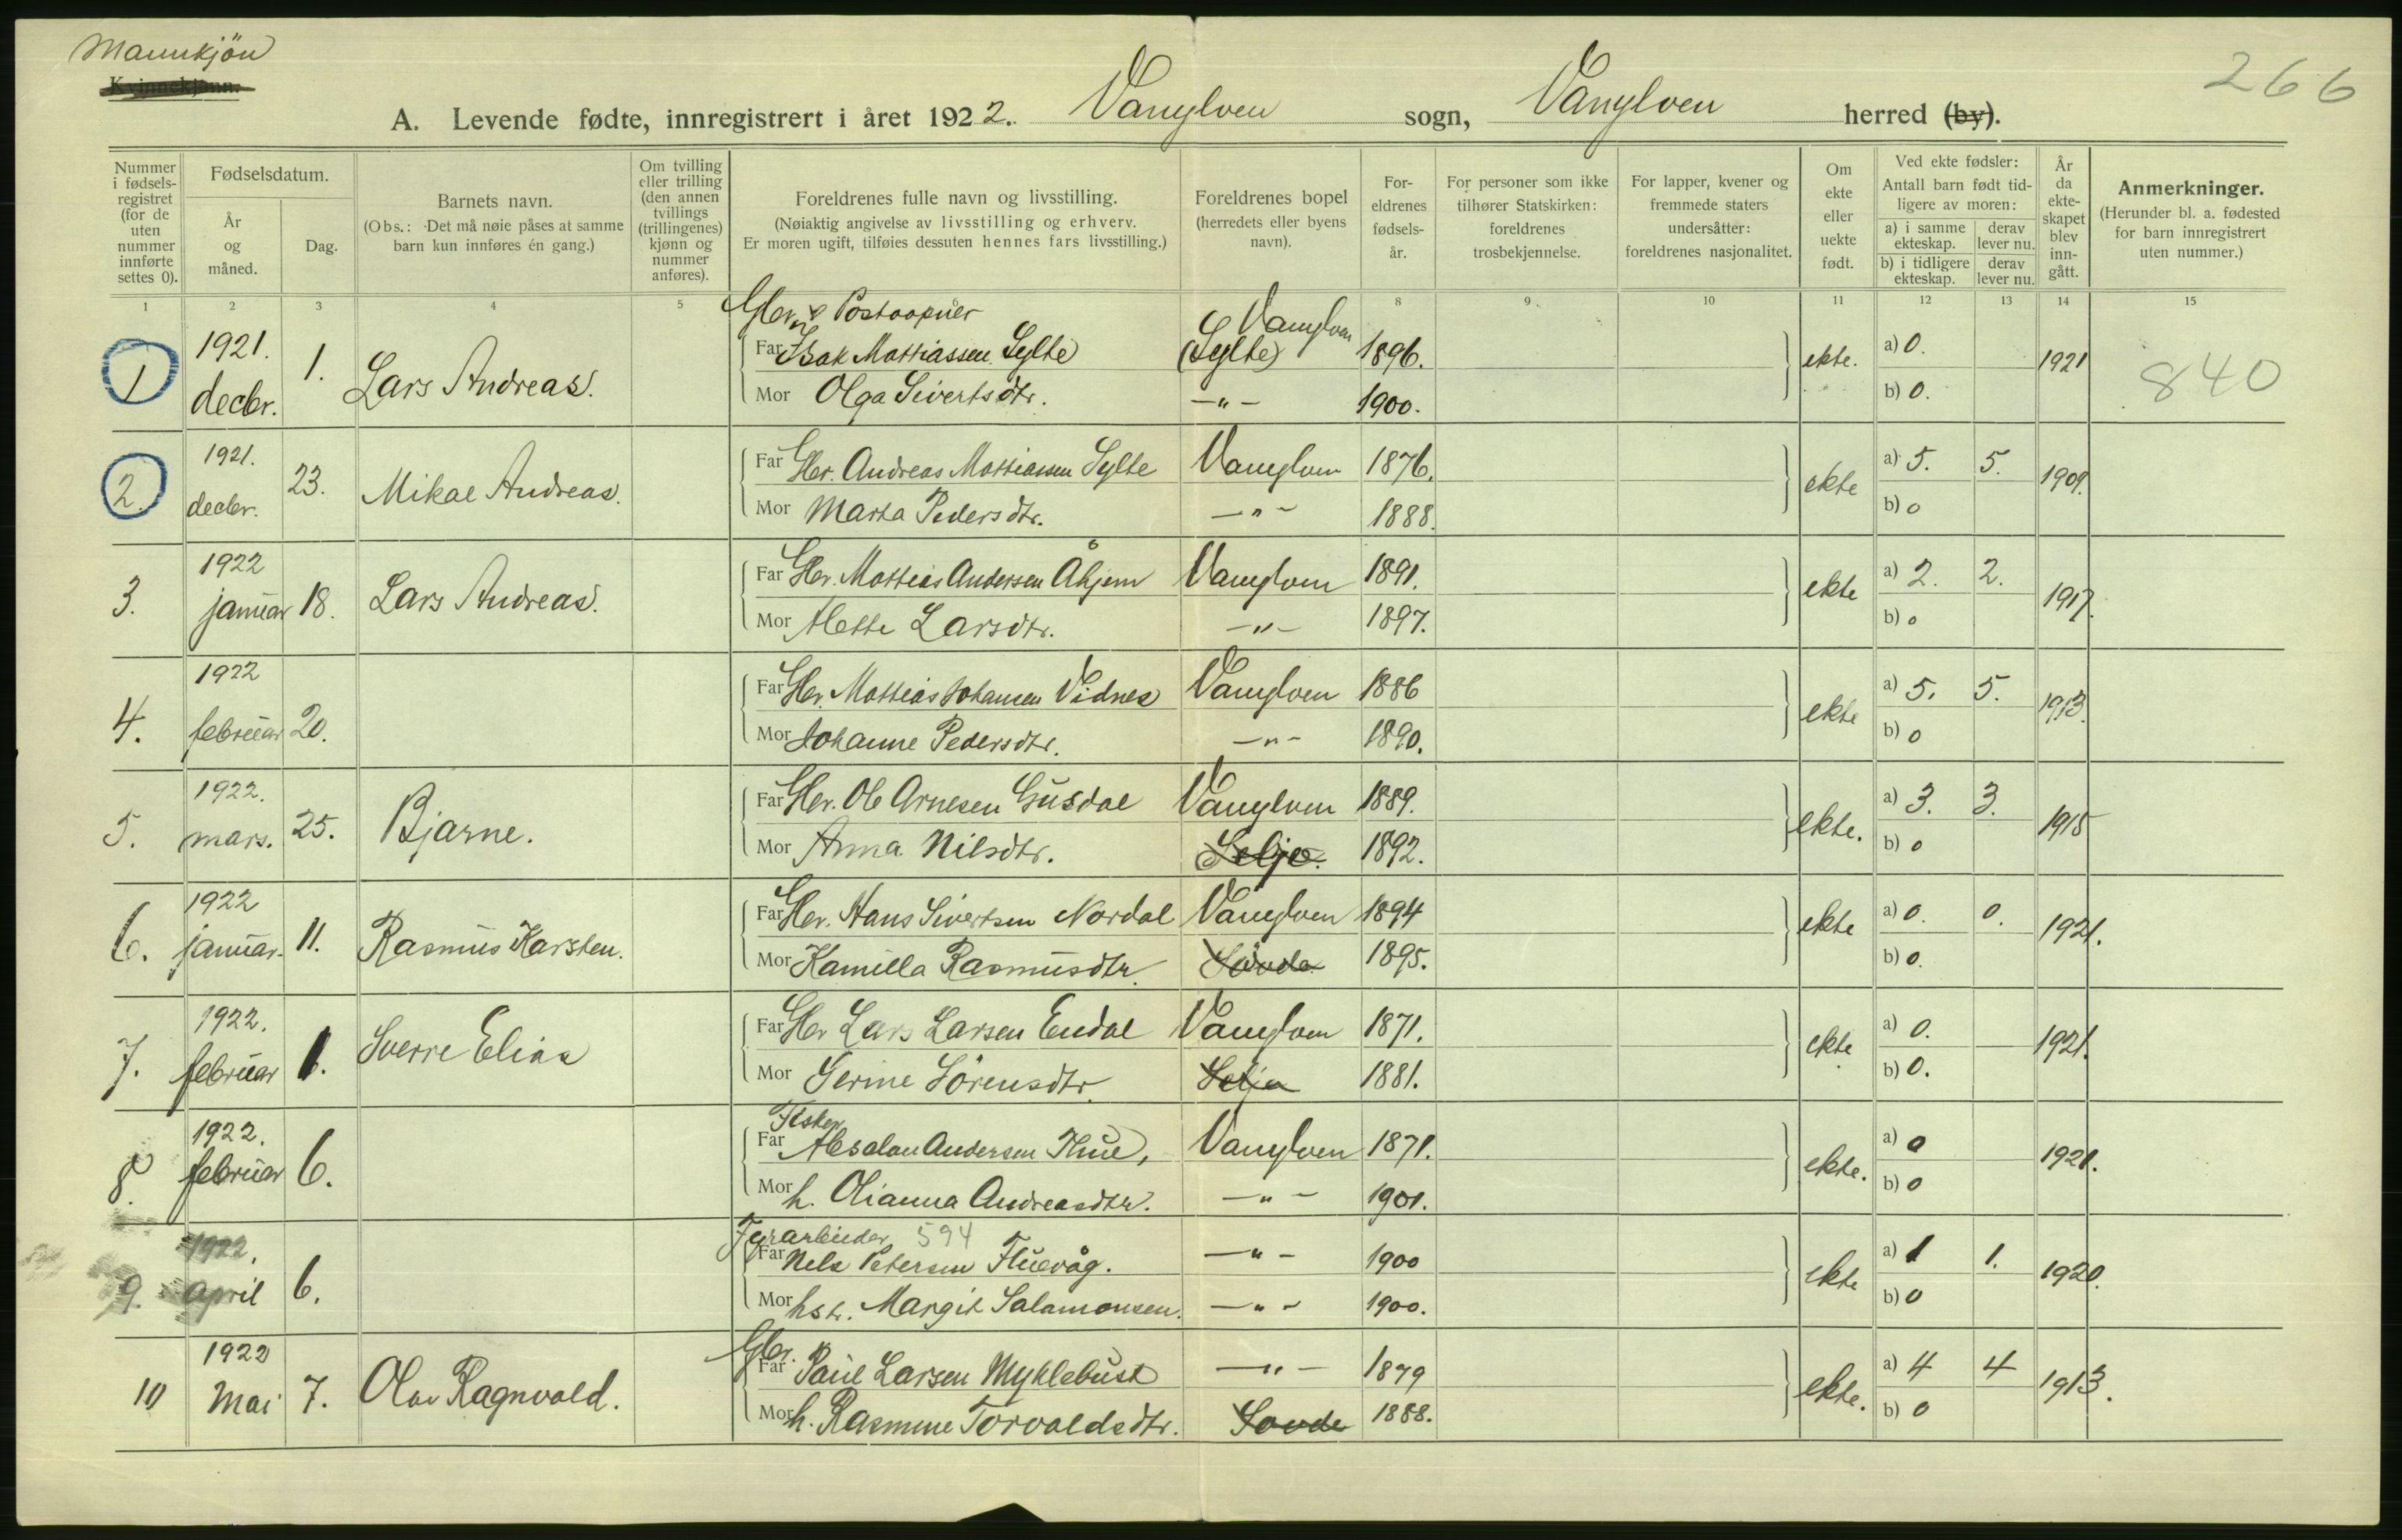 Mannkjön
Kvinnekjønn.
266
A. Levende fødte, innregistrert i året 1922. Vanylven sogn, Vanylven herred (by).
Nummer i fødselsregistret (for de uten nummer innførte settes 0).
Fødselsdatum.
År og måned.
Dag.
Barnets navn.
(Obs.: Det må nøie påses at samme barn kun innføres én gang.)
Om tvilling eller trilling (den annen tvillings (trillingenes) kjønn og nummer anføres).
Foreldrenes fulle navn og livsstilling.
(Nøiaktig angivelse av livsstilling og erhverv.
Er moren ugift, tilføies dessuten hennes fars livsstilling.)
Foreldrenes bopel (herredets eller byens navn).
Foreldrenes fødselsår.
For personer som ikke tilhører Statskirken: foreldrenes trosbekjennelse.
For lapper, kvener og fremmede staters undersåtter: foreldrenes nasjonalitet.
Om ekte eller uekte født.
Ved ekte fødsler: Antall barn født tidligere av moren:
a) i samme ekteskap. derav lever nu.
b) i tidligere ekteskap. derav lever nu.
År da ekteskapet blev inngått.
Anmerkninger.
(Herunder bl. a. fødested for barn innregistrert uten nummer.)
1 2 3 4 5 8 9 10 11 12 13 14 15
Gbr. & Postaapner Vanylven
1 1921. decbr. 1. Lars Andreas. Far Isak Mattiassen Sylte (Sylte) 1896. ekte. a) 0. 1921 840
Mor Olga Sivertsdtr. —"— 1900. b) 0.
2. 1921. decbr. 23. Mikal Andreas. Far Gbr. Andreas Mattiassen Sylte Vanylven 1876. ekte a) 5. 5. 1909.
Mor Marta Pedersdtr. —"— 1888. b) 0
3. 1922 januar 18. Lars Andreas. Far Gbr. Mattias Andersen Åhjem Vanylven 1891. ekte a) 2. 2. 1917.
Mor Mette Larsdtr. —"— 1897. b) 0
4. 1922 februar 20. Far Gbr. Mattias Johansen Vidnes Vanylven 1886 ekte a) 5. 5. 1913.
Mor Johanne Pedersdtr. —"— 1890. b) 0
5. 1922. mars. 25. Bjarne. Far Gbr. Ole Arnesen Gusdal Vanylven 1889. ekte. a) 3. 3. 1915
Mor Anna Nilsdtr. Selje. 1892. b) 0
6. 1922 januar. 11. Rasmus Karsten. Far Gbr. Hans Sivertsen Nordal Vanylven 1894 ekte a) 0. 0. 1921.
Mor Kamilla Rasmusdtr. Søvde 1895. b) 0.
7. 1922. februar 1. Sverre Elias Far Gbr Lars Larsen Endal Vanylven 1871. ekte a) 0. 1921.
Mor Gerine Sörensdtr. Selje 1881. b) 0.
Fisker
8. 1922. februar 6. Far Absalon Andersen Thue, Vanylven 1871. ekte. a) 0 1921.
Mor h. Olianna Andreasdtr. —"— 1901. b) 0
Fyrarbeider 594
9. 1922. april 6. Far Nels Petersen Fluevåg. —"— 1900 ekte a) 1 1. 1920.
Mor hstr. Margit Salamonsen. —"— 1900. b) 0
Gbr.
10 1922 Mai 7. Olav Ragnvald. Far Paul Larsen Myklebust —"— 1879 ekte. a) 4 4 1913.
Mor h. Rasmine Torvaldsdtr. Søvde 1888. b) 0